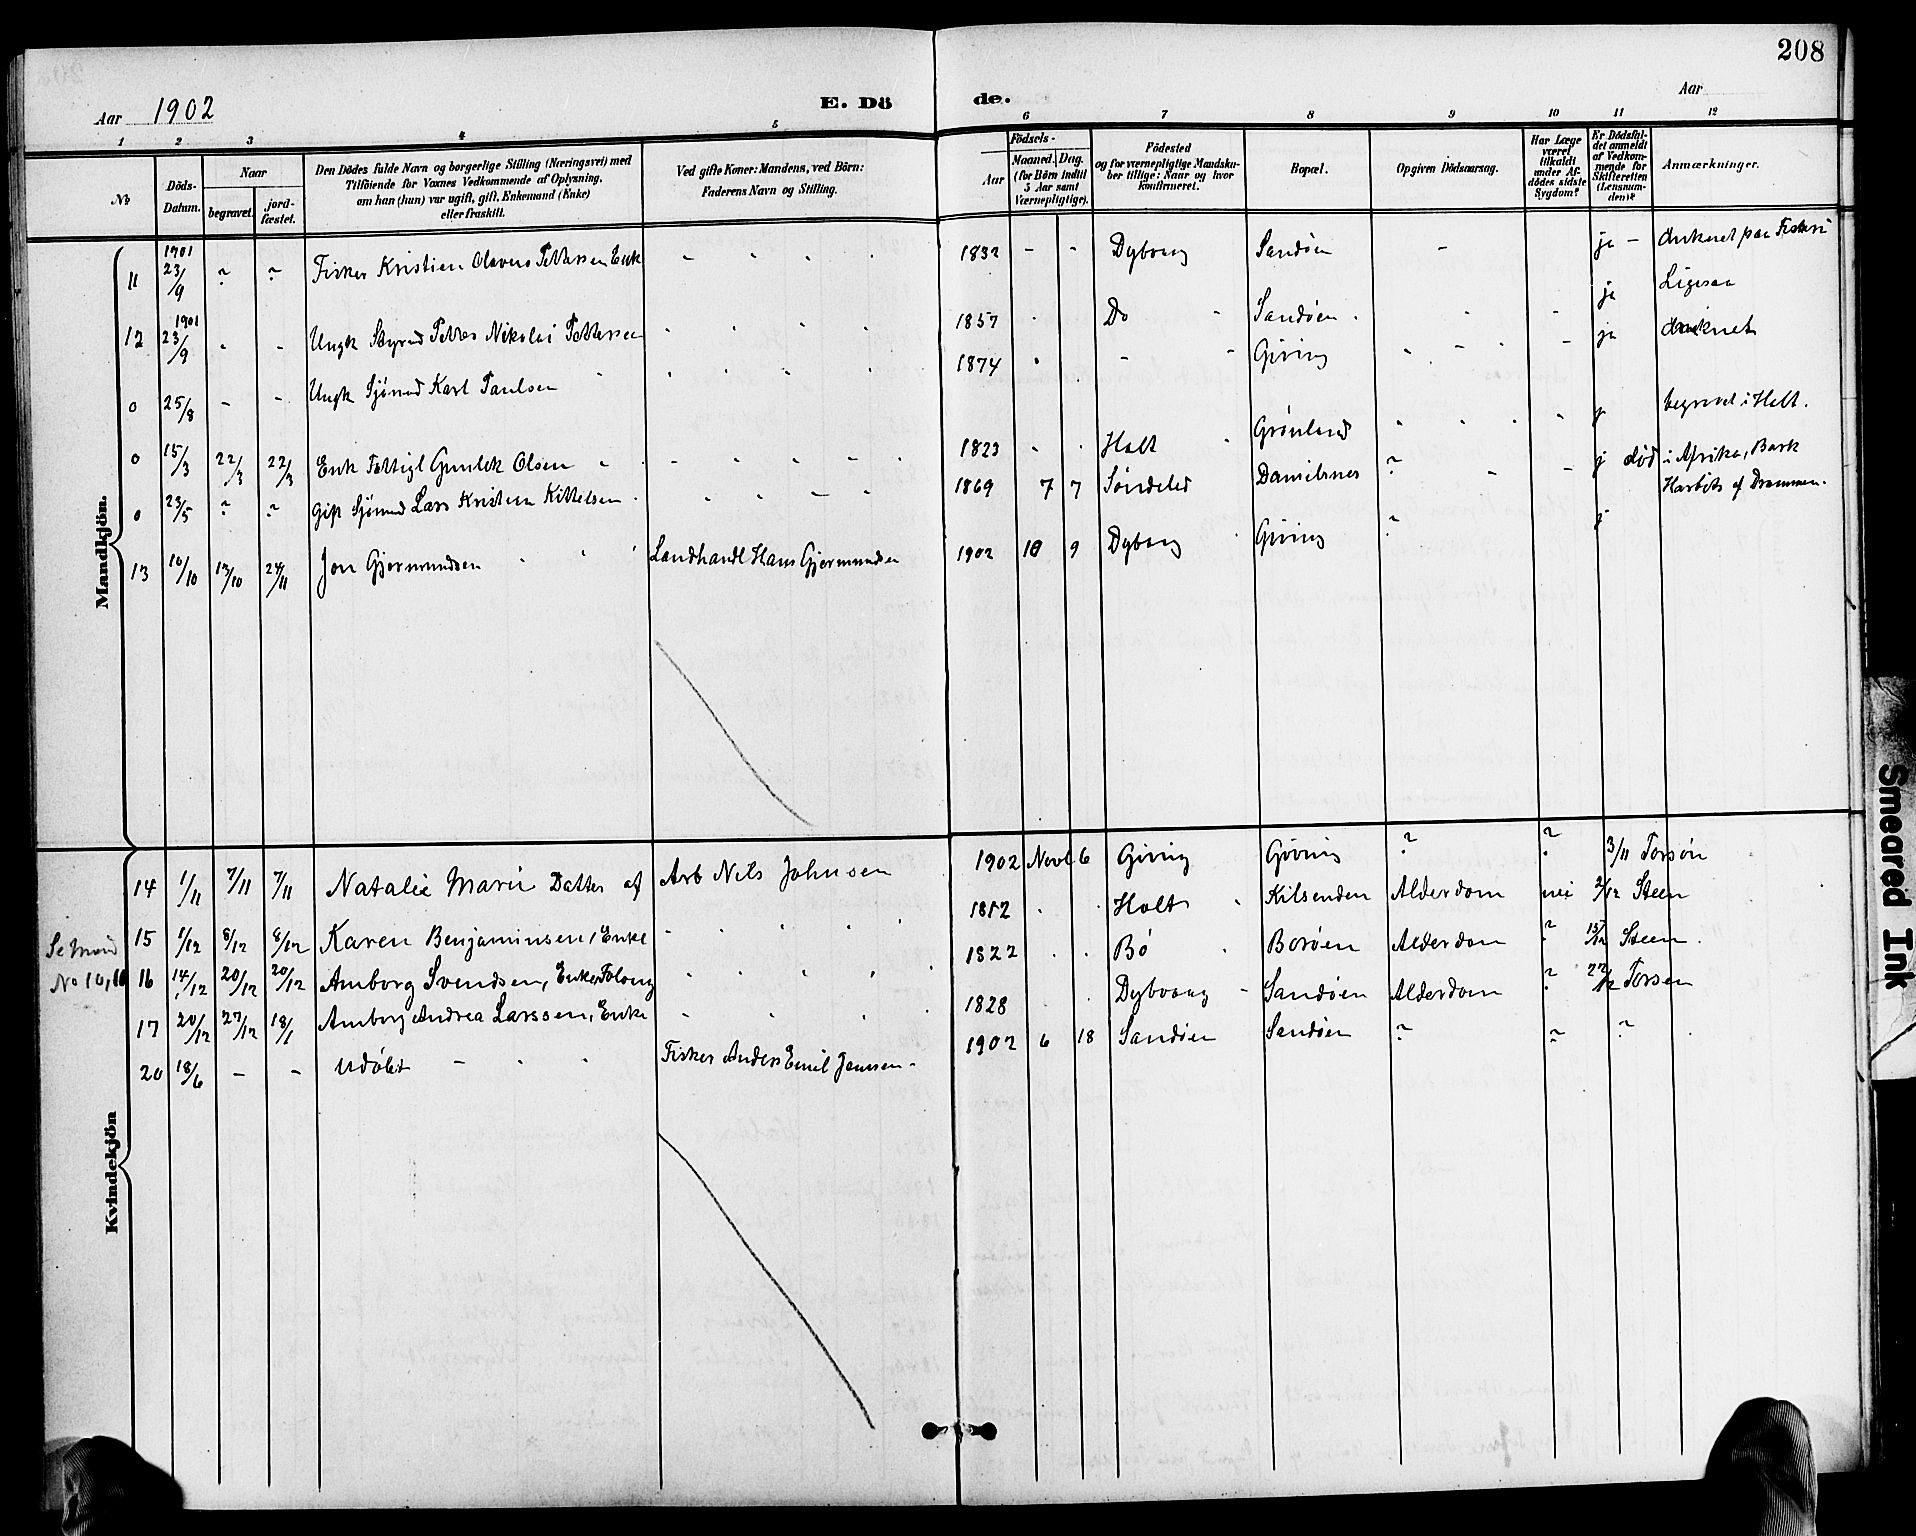 208
Aar 1902
E. Dö de.
Aar
1 2 3 4 5 6 7 8 9 10 11 12
No
Döds-Datum.
Naar
begravet.
jord-fæstet.
Den Dödes fulde Navn og borgerlige Stilling (Næringsvei) med
Tilföiende for Voxnes Vedkommende af Oplysning,
om han (hun) var ugift, gift, Enkemand (Enke)
eller fraskilt.
Ved gifte Koner: Mandens, ved Börn:
Faderens Navn og Stilling.
Födsels-
Aar
Maaned. Dag.
(for Börn indtil
5 Aar samt
Værnepligtige).
Födested
og for værnepligtige Mandsku-
ber tillige: Naar og hvor
konfirmeret.
Bopæl.
Opgiven Dödsaarsag.
Har Læge
været
tilkaldt
under Af-
dödes sidste
Sygdom?
Er Dödsfal-
det anmeldt
af Vedkom-
mende for
Skifteretten
(Lensman-
den)?
Anmærkninger.
Mandkjön.
11 1901 23/9 ? ? Fisker Kristien Olavus Pettersen Enk - - - - 1832 - - Dybvaag Sandøen - ja - druknet paa Fiskeri
12 1901 23/9 - - Ungk Styrmd Petter Nikolai Pettersen 1857 Do Sandøen ja Ligesaa
0 25/8 - - Ungk Sjömd Karl Paulsen 1874 - Giving ja druknet
0 15/3 22/3 22/3 Enk Fattigl Gunlek Olsen 1823 Holt Grønland j begravet i Holt.
0 23/5 ? ? gift Sjömd Lars Kristien Kittelsen 1869 7 7 Søndeled Danielsnes ? - j død i Afrika, Bark
Harbitz af Drammen.
13 10/10 13/10 24/11 Jon Gjermundsen Landhandl Hans Gjermundsen 1902 10 9 Dybvaag Giving ? j
Kvindekjön
14 1/11 7/11 7/11 Natalie Marie Datter af Arb Nils Johnsen 1902 Novb 6 Giving Giving ? ? 3/11 Torsøn
15 1/12 8/12 8/12 Karen Benjaminsen, Enke 1812 Holt Kilsenden Alderdom nei 2/12 Steen
Se
No 10,
16 14/12 20/12 20/12 Amborg Svendsen, Enke 1822 Bø Borøen Alderdom ? 15/12 Steen.
17 20/12 27/12 18/1 Amborg Andrea Larssen, Enke 1828 Dybvaag - Sandøen Alderdom ? 22/12 Torsen
20 18/6 - - Udøbt - Fisker Anders Emil Jensen - 1902 6 18 Sandøen Sandøen ? ? ?
Smeared Ink